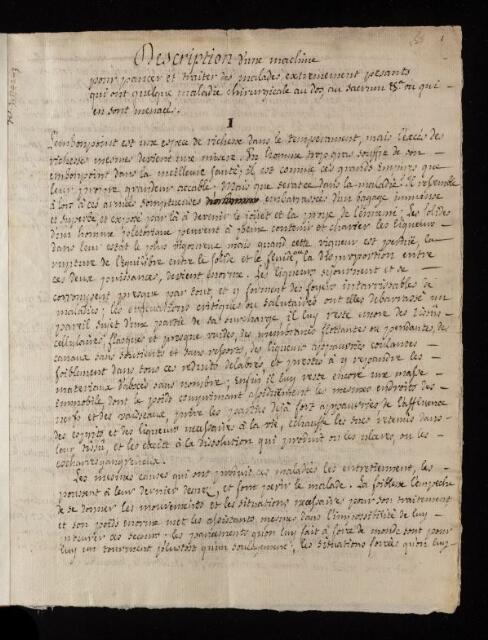 Description d'une machine
pour pancer et traiter des malades extremement pesants
qui ont quelque maladie chirurgicale au dos au sacrum &c. ou qui
en sont menacés.
1
L'embonpoint est une espece de richesse dans le temperament, mais l'excés des
richesses mesmes devient une misere. Un homme trop gras souffre de son
embonpoint dans la meilleure santé; il est comme ces grands Empires que
leur propre grandeur accable. Mais que sera-ce dans la maladie? il ressemble
alors à ces armées somptueuses embarassées d'un bagage immense
et superbe et exposé par là à devenir le jouet et la proye de l'ennemi; Les solides
d'un homme plethorique peuvent à peine contenir et charrier les liqueurs
dans leur estat le plus rigoureux mais quand cette vigueur est perdüe, la
rupture de l'equilibre entre le solide et le fluide, la disproportion entre
ces deux puissances, devient enorme. Les liqueurs sejournent et se
corrompent presque par tout et y forment des foyers intarissables de
maladies; les evacuations critiques ou salutaires ont elles debarrassé un
pareil sujet d'une partie de sa surcharge, il luy reste encore des tissus
cellulaires, flasques et presque vuides, des membranes flottantes ou pendantes, des
canaux sans et sans ressorts, des liqueurs appauvries coulantes
foiblement dans tous ces reduits delabrés, et prestes à y repandre les
materiaux d'abscés sans nombre; Enfin il luy reste encore une masse
immobile dont le poids comprimant assidûement les mesmes endroits des
nerfs et des vaisseaux, prive les parties dejà fort appauvries de l'affluence
des esprits et des liqueurs necessaires à la vie, echauffe les sucs retenus dans
leur tissu, et les excite à la dissolution qui produit ou les ulceres, ou les
escharres gangreneux.
Les mesmes causes qui ont produit ces maladies les entretiennent, les
poussent à leur dernier degré, et font perir le malade. La foiblesse l'empeche
de se donner les mouvements et les situations necessaires pour son traitement
et son poids enorme met les assistants mesmes dans l'impossibilité de luy
procurer ces secours; les pansements qu'on luy fait à force de monde sont pour
luy un tourment plustost qu'un soulagement; les situations forcées qu'on luy